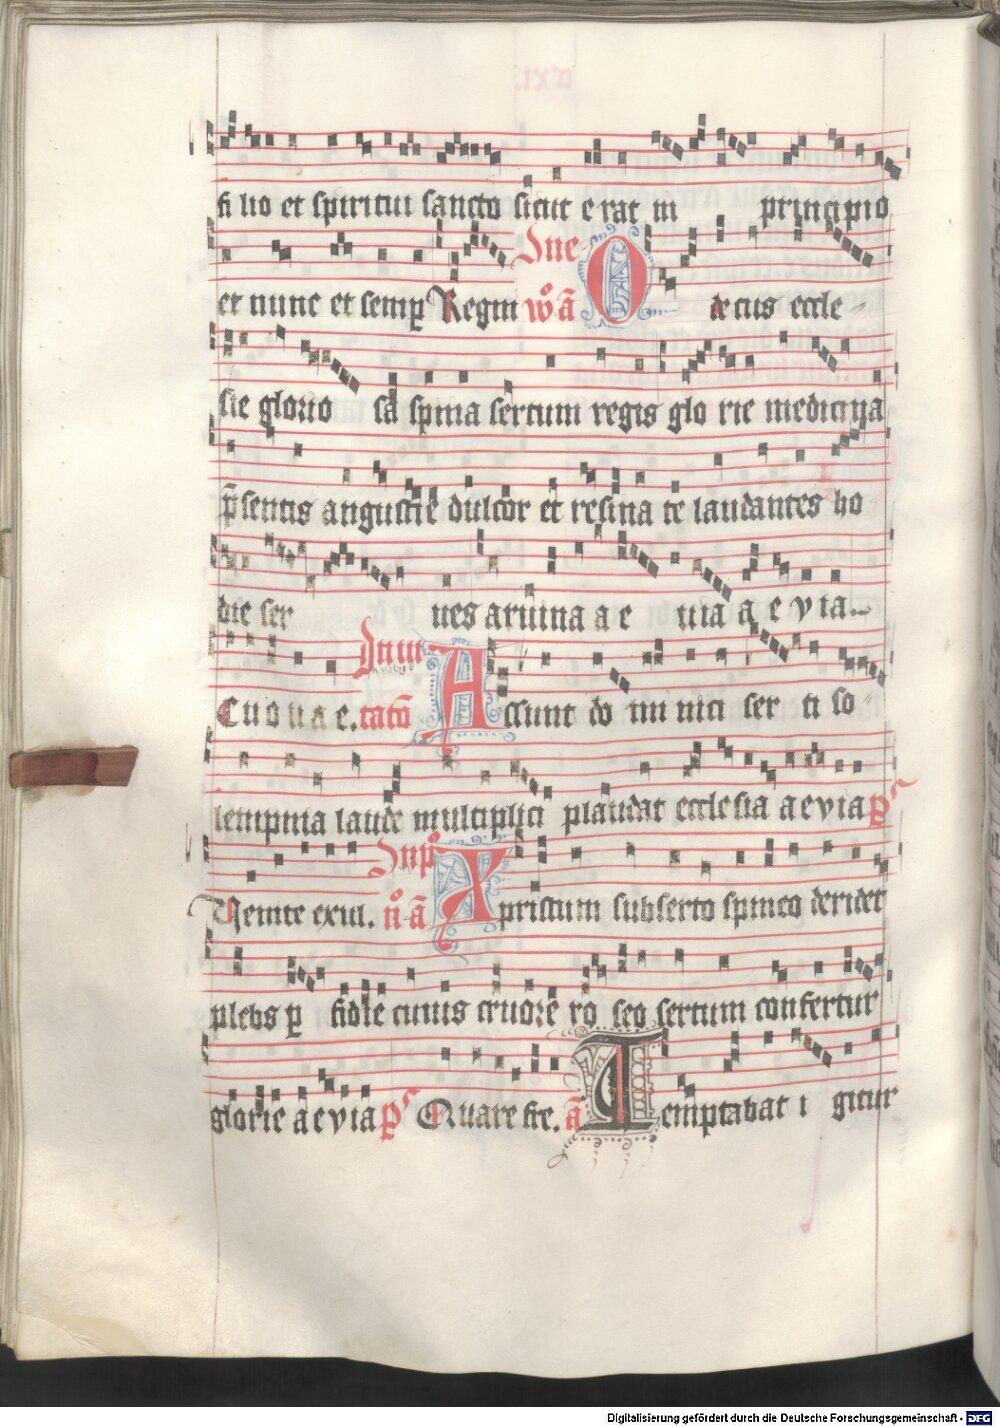 fi lio et spiritui sancto sicut e rat in principio
In e
et nunc et semp Regin ẘ ā O decus eccle
sie glorio sa spina sertum regis glo rie medicina
p̄sentis angustie dulcor et resina te laudantes ho
die ser ues a ruina a e uia a e v ia
Inui
Euouae. tatō Assunt do mi nici ser ti so
lempnia laude multiplici plaudat ecclesia aevia p̄s
In p̊
Venite exul. n̊ ā Xpristum subserto spineo deridet
plebs p fidie cuius cruore ro seo sertum confertur
glorie aevia p̄s Quare fre. ā Temptabat i gitur
Digitalisierung gefördert durch die Deutsche Forschungsgemeinschaft - DFG